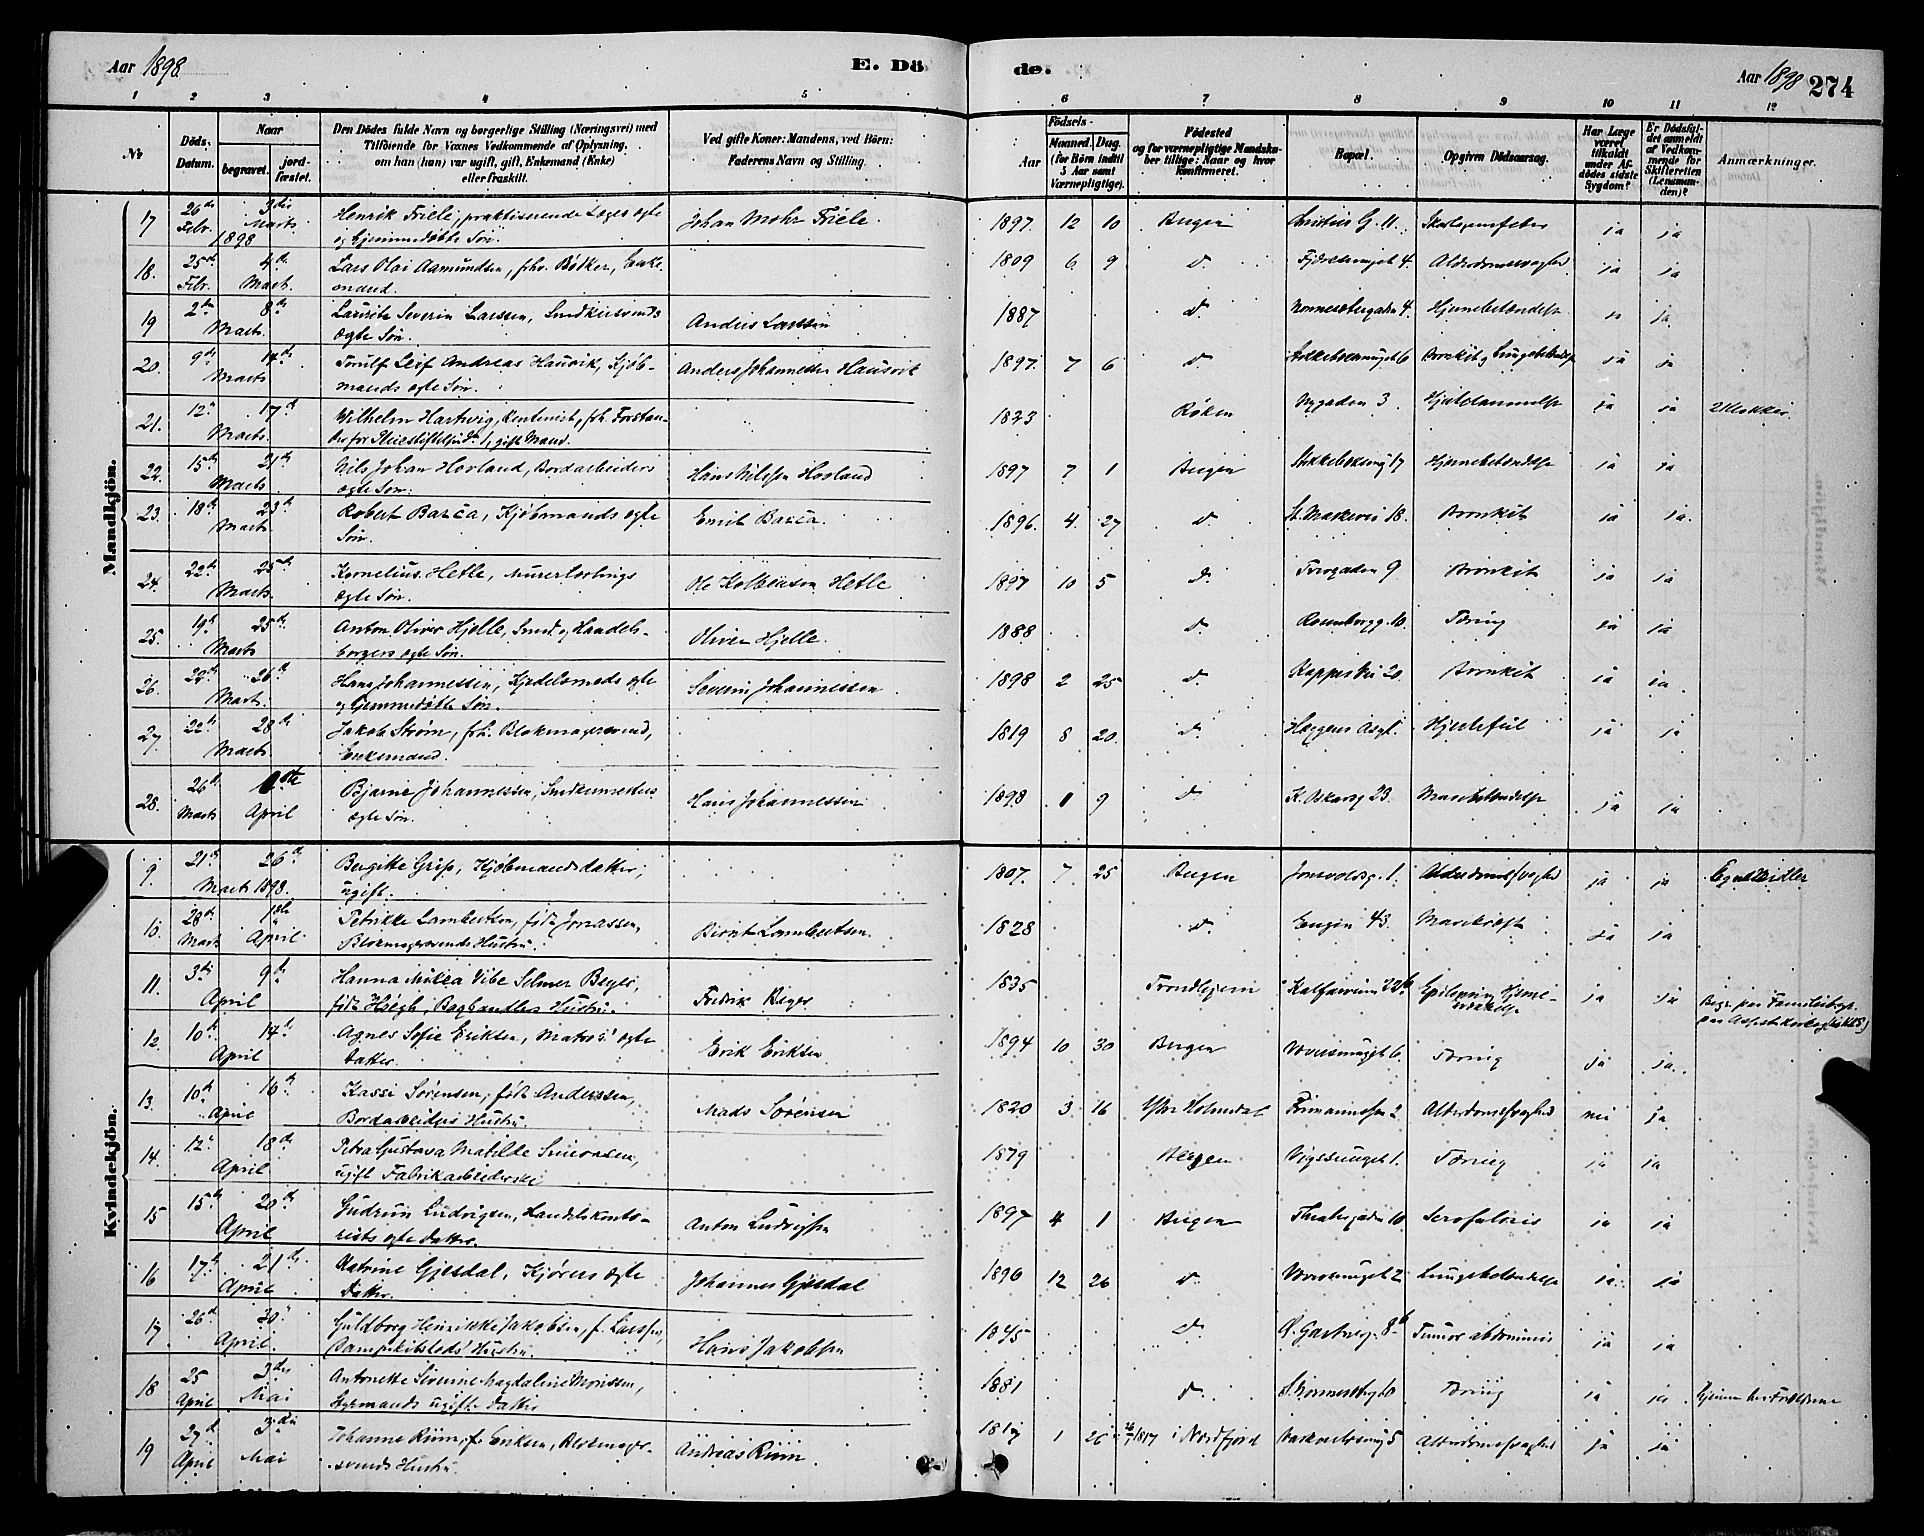 Aar 1898
E. Dö
de.
Aar 1898 274
1 2 3 4 5 6 7 8 9 10 11 12
№
Döds-Datum.
Naar
begravet.
jordfæstet.
Den Dödes fulde Navn og borgerlige Stilling (Næringsvei) med
Tilföiende for Voxnes Vedkommende af Oplysning,
om han (hun) var ugift, gift, Enkemand (Enke)
eller fraskilt.
Ved gifte Koner: Mandens, ved Börn:
Faderens Navn og Stilling.
Födsels-
Aar
Maaned. Dag.
(for Börn indtil
5 Aar samt
Værnepligtige).
Födested
og for værnepligtige Mandskaber tillige: Naar og hvor
konfirmeret.
Bopæl.
Opgiven Dödsaarsag.
Har Læge
været
tilkaldt
under Afdödes sidste
Sygdom?
Er Dödsfaldet anmeldt
af Vedkommende for
Skifteretten
(Lensmanden)?
Anmærkninger.
Mandkjön.
17 26de Febr. 3die Marts 1898 Henrik Friele, praktiserende Læges ægte
og hjemmedøbte Søn. Johan Mohr Friele. 1897. 12 10 Bergen Christies G. 11. Skarlagensfeber ja ja
18. 25de Febr. 4de Marts. Lars Olai Aamundsen, fhv. Bøtker, Enkemand. 1809 6 9 d. 4. Alderdomssvaghed ja ja
19 2den 8de Marts. Laurits Severin Larssen, Smedkusvends
ægte Søn. Anders Larssen 1887 d. Nonnesetergaden 4. Hjernebetændelse ja.
20. 9de 14de Marts Torulf Leif Andreas Hausvik, Kjøbmands ægte Søn. Anders Johannessen Hausvik 1897. 7 6 d. 6 Bronkit og Lungebetændelse ja ja
21. 12te 17de Marts. Wilhelm Hartvig, Rentenist, fhv. Forstander for gift Mand. 1823 Røken Nygaden 3. Hjertelammelse ja ja 2 Klokker.
22. 15de 21de Marts Nils Johan Hovland, Bordarbeiders
ægte Søn. Hans Nilssen Hovland 1897 7 1 Bergen 17 Hjernebetændelse ja ja
23. 18de 23de Marts. Robert Barca, Kjøbmands ægte
Søn. Emil Barca. 1896. 4. 27 d St. Markevei 18. Bronkit ja ja.
24. 22de 25de Marts. Kornelius Hetle, Murerlærlings
ægte Søn. Ole Hetle 1897 10 5 d. Torvgaden 9 Bronkit ja ja
25. 19de 25de Marts Anton Oliver Hjelle, Smed og Handelsborgers ægte Søn. Oliver Hjelle. 1888 d. Rosenbergg. 10. Tæring ja ja
26. 22de 26de Marts. Hans Johannessen, Kjedelsmeds ægte
og hjemmedøbte Søn. Severin Johannessen 1898 2 25 d. 20. Bronkit ja ja.
27. 22de 28de Marts Jakob Strøm, fhv. Blokmagersvend,
Enkemand. 1819 8 20. d. Hjertefeil ja ja
28. 26de Marts 1ste April Bjarne Johannessen,
ægte Søn. Hans Johannessen 1898 1 9 d. K. Oskarsg. 23. Mavebetændelse ja ja
Kvindekjön.
9. 21de 26de Marts 1898. Birgitte Grip, Kjøbmandsdatter,
ugift. 1807. 7. 25 Bergen 1. Alderdomssvaghed ja ja
10. 28de Marts 1ste April. Petrikke Lambertsen, født Jonassen,
Blokmagersvends Hustru. Berent Lambertsen. 1828 d. Engen 43. Mavekræft ja ja
11. 3die 9de April Hanna Vibe Selmer Beyer,
født Høegh, Boghandlers Hustru. Fredrik Beyer 1835 Trondhjem Kalfarveien 22b. ja ja
12. 10de 14de April Agnes Sofie Eriksen, Matros' ægte
Datter. Erik Eriksen 1894 10 30 Bergen 6. Tæring ja ja.
13. 10de 16de April Kassi Sørensen, født Anderssen,
Bordarbeiders Hustru. Mads Sørensen 1820 3 16 Ytre Holmedal 2. Alderdomssvaghed nei ja
14. 12te 18de April Petra Gustava Matilde Simonsen,
ugift Fabrikarbeiderske 1879 Bergen 1. Tæring ja ja
15 15de 20de April Gudrun Ludvigsen, Handelskontorists ægte Datter. Anton Ludvigsen 1897 4 1 Bergen Theatergaden 10 Scrofulosis ja ja
16 17de 21de April Katrine Gjesdal, Kjørers ægte
Datter. Johannes Gjesdal 1896 12 26 d 2 Lungebetændelse ja ja
17 26de 30te April. Guldborg Henrikke Jakobsen, f. Larssen,
Hustru. Hans Jakobsen 1845 d. 8b Tumor abdominis ja ja
18 25 April 3die Mai Antonette Severine Magdaline Monssen,
Styrmands ugifte Datter 1881 d. 10 Tæring ja ja
19 27de April 3die Mai Johanne Riim, f. Eriksen, Blokmagersvends Hustru. Andreas Riim. 1817 1 26 26/1 1817 i Nordfjord 5 Alderdomssvaghed ja ja